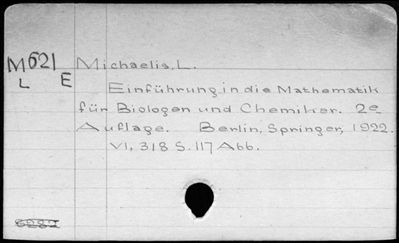 M621 Michaelis, L.
L E
Einführung in die Mathematik
für Biologen und Chemiker. 2e
Auflage. Berlin, Springer, 1922.
VI, 318 S. 117 Abb.